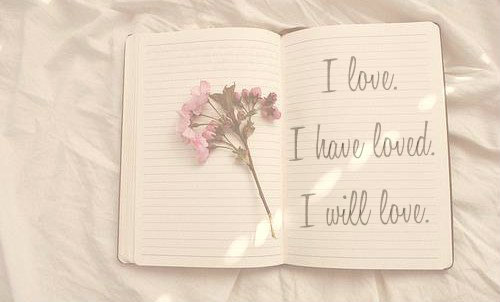 I love.
I have loved.
I will love.